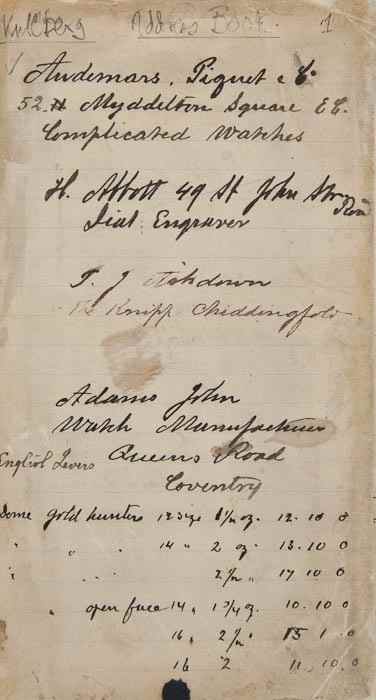 Kullberg Address Book. 1
Audemars, Piguet & Co.
52 A Myddelton Square E.C.
Complicated Watches
H. Abbott 49 St John Street Road
Dial Engraver
T. J Ashdown
Knipp Chiddingfold
Adams John
Watch Manufacturer
English Levers Queens Road
Coventry
Dome gold hunters 12 size 1 1/2 oz. 12. 10 0
" " " 14 " 2 oz. 13. 10 0
" " " 2 1/2 " 17 10 0
" open face 14 " 1 3/4 oz. 10. 10 0
16 " 2 1/2 " 15 1 0
16 2 11. 10. 0